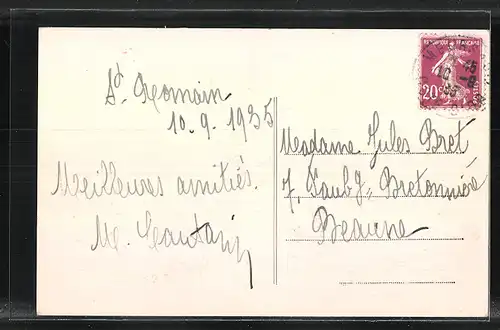 St Romain
10.9.1935
Meilleures amitiés.
M.
REPUBLIQUE FRANCAISE
20c
POSTES
Madame Jules Bret
7, Faubg Bretonnière
Beaune